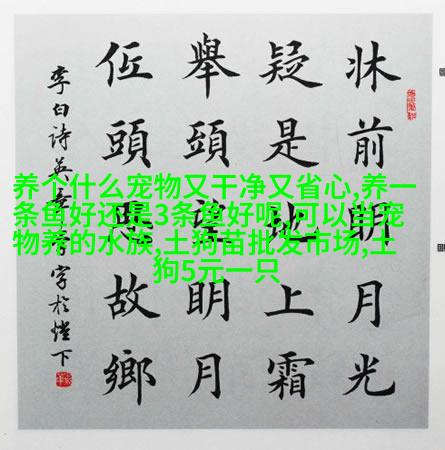 养个什么宠物又干净又省心,养一
条鱼好还是3条鱼好呢,可以当宠
物养的水族,土狗苗批发市场,土
狗5元一只
牀前明月光
疑是地上霜
舉頭望明月
低頭思故鄉
李白詩
字於燈下